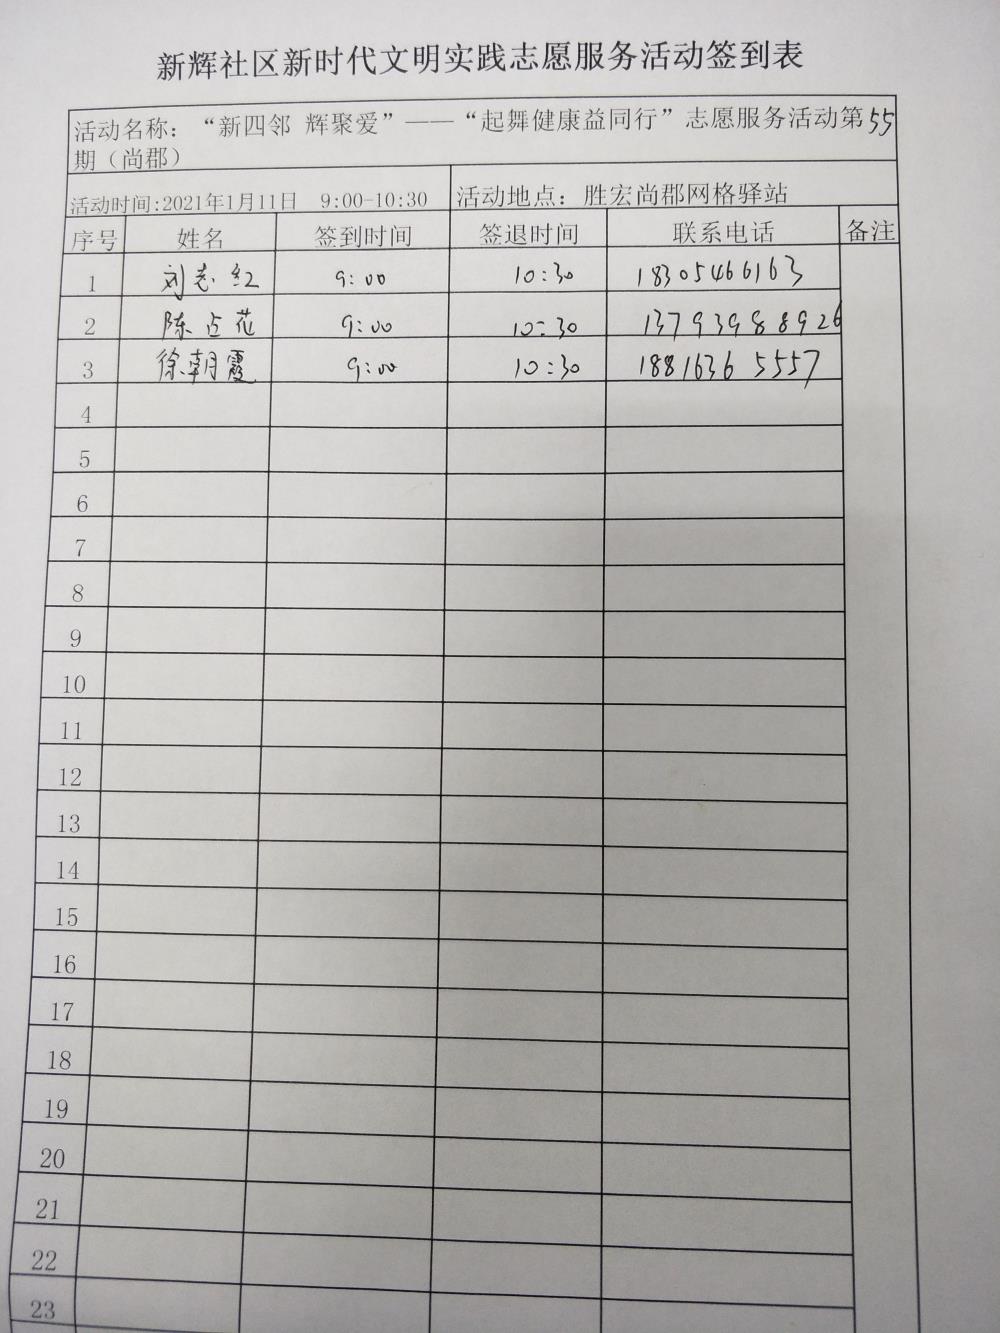 新辉社区新时代文明实践志愿服务活动签到表
活动名称：“新四邻 辉聚爱”——“起舞健康益同行”志愿服务活动第55
期（尚郡）
活动时间:2021年1月11日 9:00-10:30 活动地点：胜宏尚郡网格驿站
序号 姓名 签到时间 签退时间 联系电话 备注
1 刘志红 9:00 10:30 18305466163
2 陈占花 9:00 10:30 13793988926
3 徐朝霞 9:00 10:30 18816365557
4
5
6
7
8
9
10
11
12
13
14
15
16
17
18
19
20
21
22
23